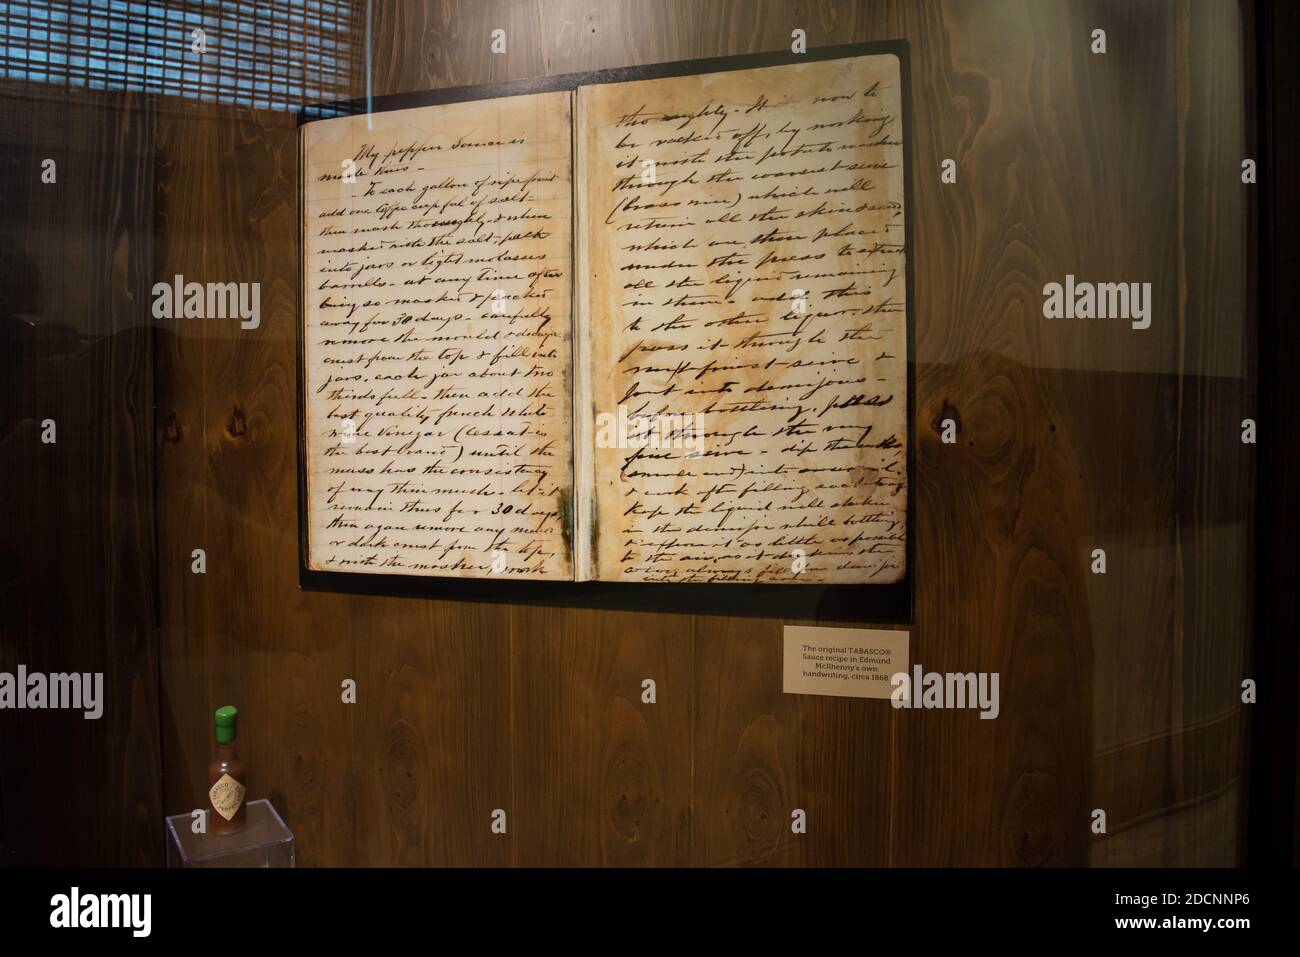 My pepper Sauce is
made thus -
- To each gallon of ripe fruit
add one Coffee cup full of salt -
then mash thoroughly & when
mashed with the salt, pack
into jars or light molasses
barrels - at any time after
being so mashed & packed
away for 30 days - carefully
remove the mould &
crust from the top & fill into
jars, each jar about two
thirds full - then add the
best quality french White
wine Vinegar (Cessat is
the best brand) until the
mass has the consistency
of any thin mush - let it
remain thus for 30 days,
then again remove any mould
or dark crust from the top,
& with the masher, work
thoroughly - It is now to
be worked off, by working
it with the potato masher
through the coarsest seive
(brass wire) which will
retain all the skin & seed,
which are then placed
under the press to extract
all the liquid remaining
in them - add this
to the other liquor, then
pass it through the
next finest seive &
put into demijons -
before bottling, pass
it through the very
fine seive - dip the corks,
(small end) into sweet oil
& cork after filling each bottle
Keep the liquid well shaken
in the demijon while bottling,
& expose it as little as possible
to the air, as it darkens the
color, always
into the
The original TABASCO®
Sauce recipe in Edmund
McIlhenny's own
handwriting, circa 1868.
alamy
alamy
alamy
alamy
alamy
alamy
a
a
a
a
a
a
a
a
a
a
a
a
a
alamy
Image ID: 2DCNNP6
www.alamy.com